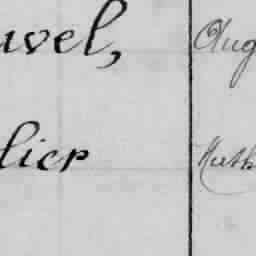 uvel, Aug
lier Ruth